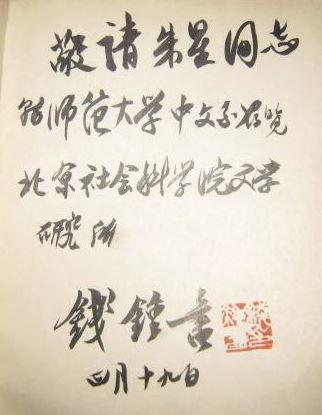 敬請朱星同志
师范大学中文系存览
北京社会科学院文学
研究所
錢鍾書
四月十九日